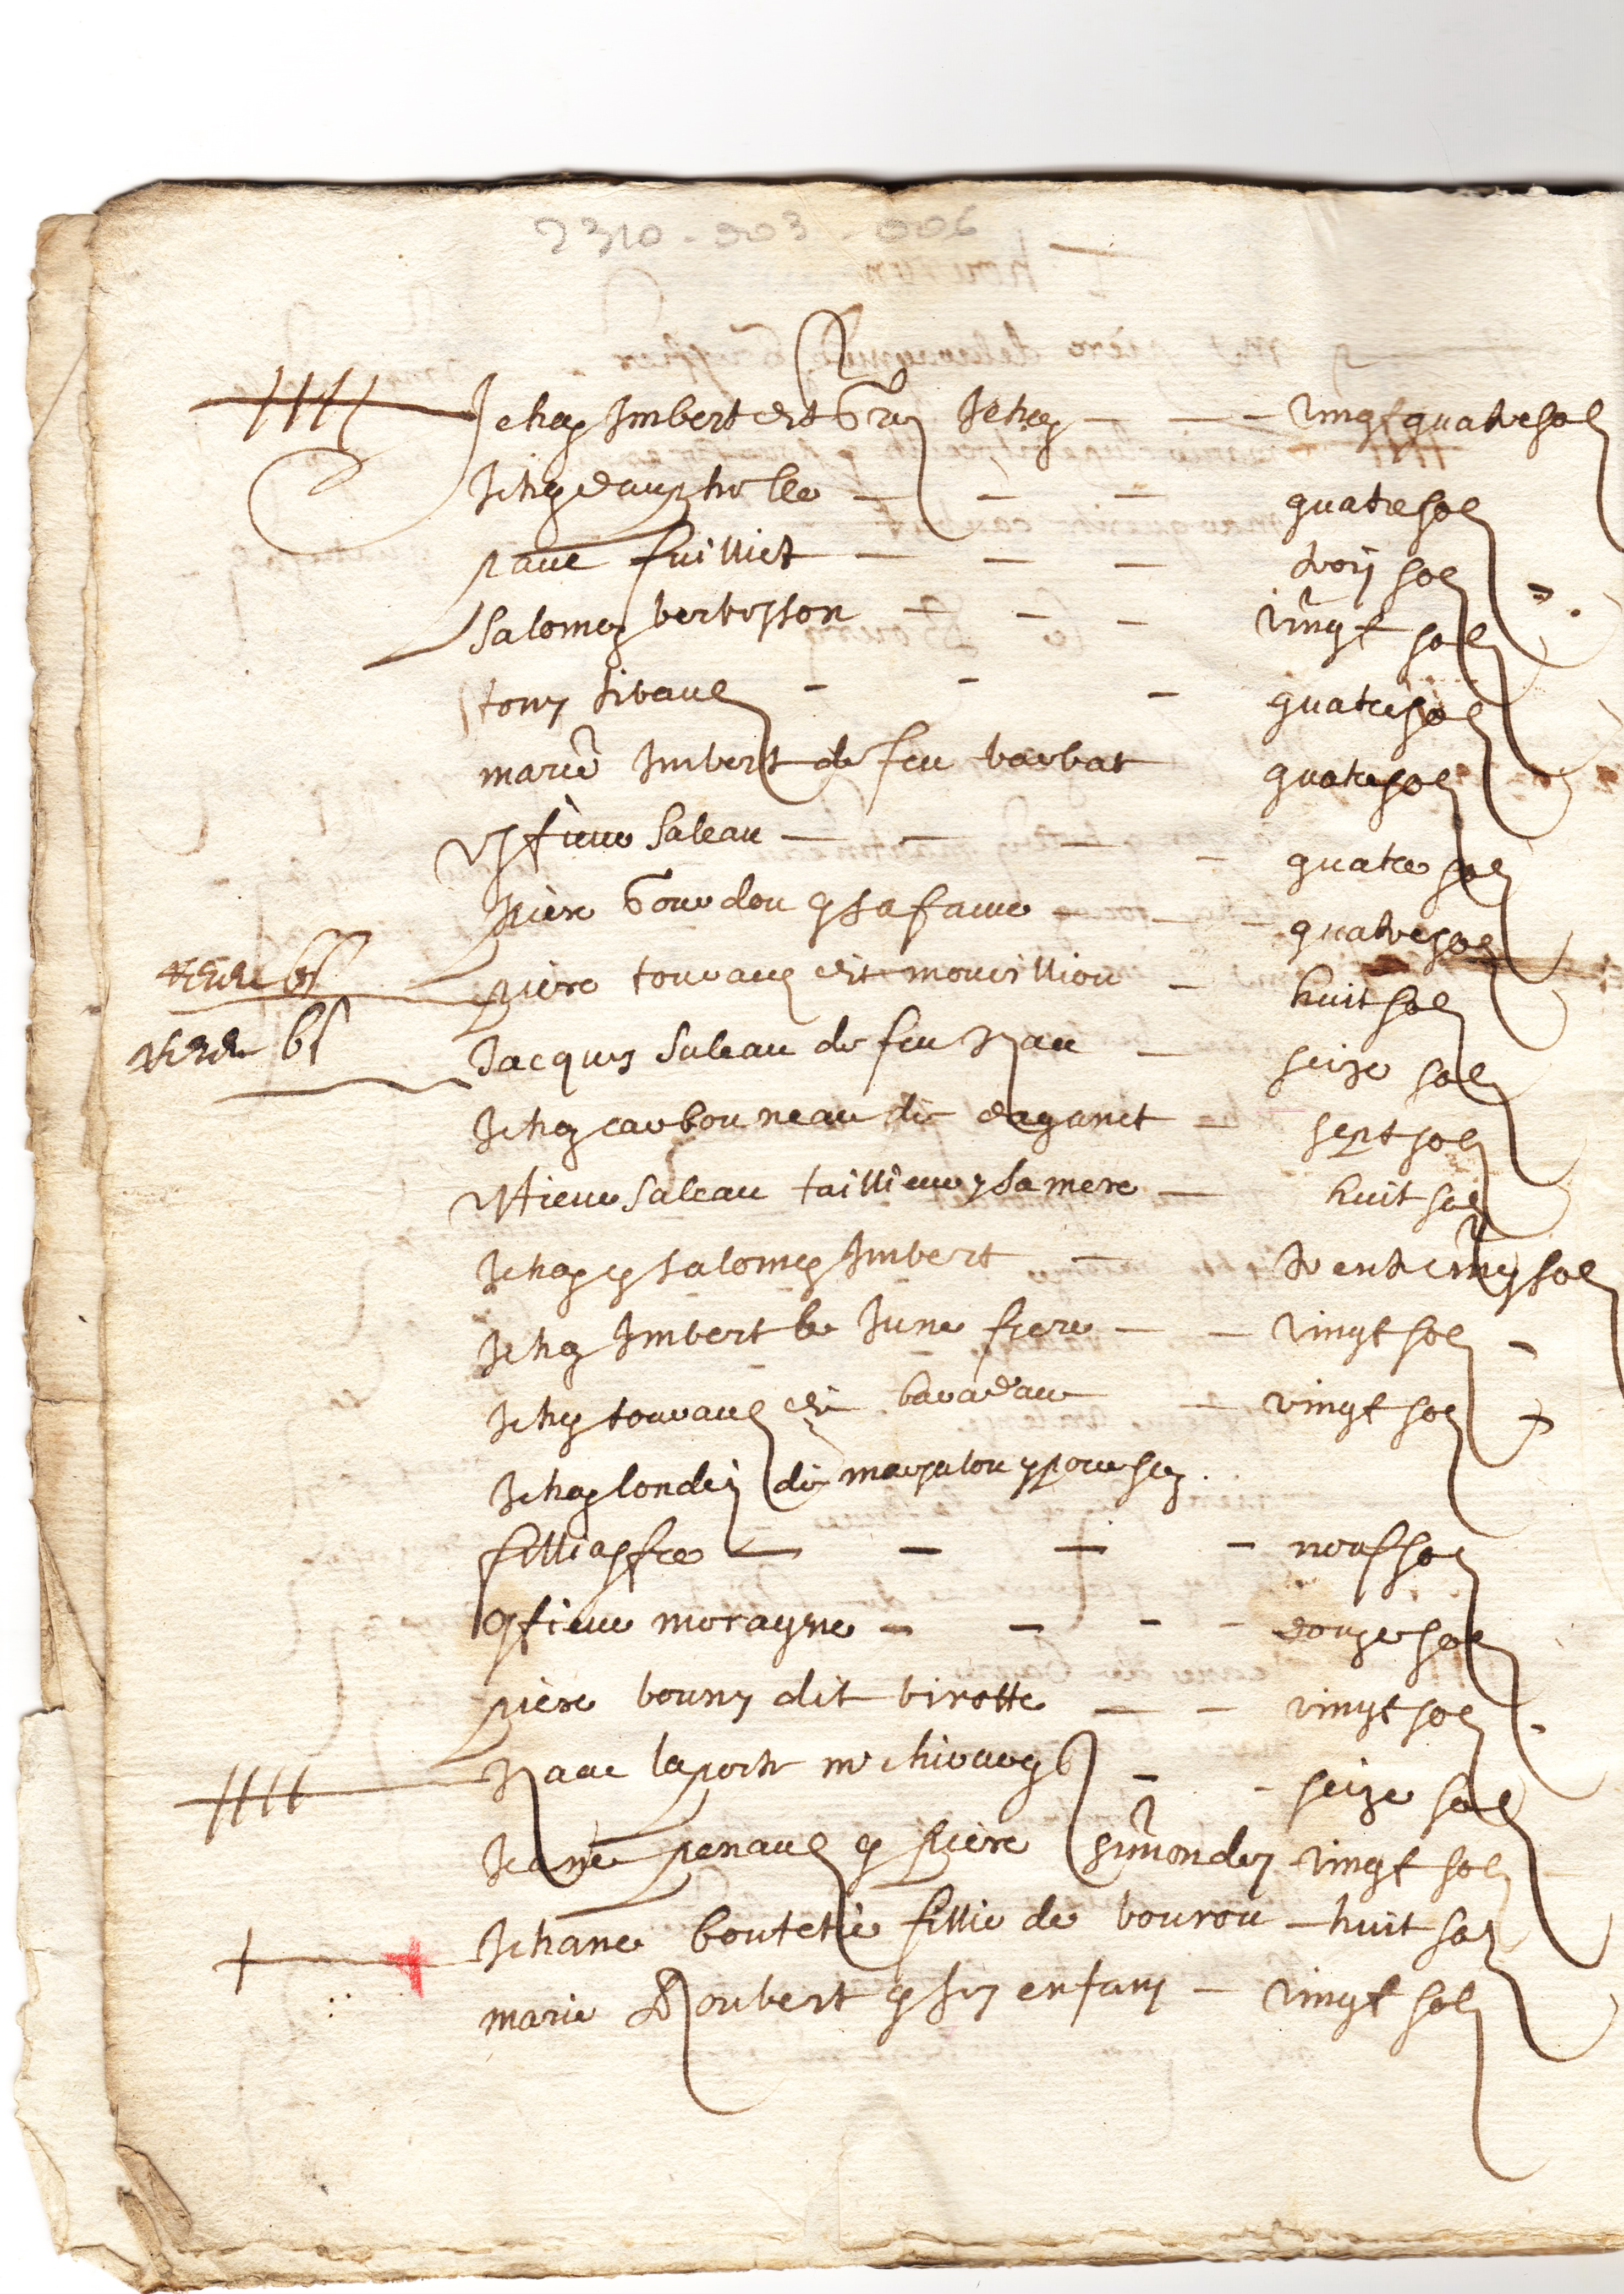 2310-903-006
Jehan Imbert dit Gran Jehan - - vingt quatre sol
Jehan - - - quatre sol
paul fuilliet - - - troys sol
Salomon bertesson - - - vingt sol
tony sibaud - - - quatre sol
marie Imbert de feu barbat quatre sol
saleau - - - quatre sol
piere Gourdou et sa fame - - - quatre sol
piere touraud dit mourilliou - huit sol
Jacques saleau de feu - seize sol
Jehan carbouneau dit daganet - sept sol
saleau tailleur et sa mere - huit sol
Jehan et salomon Imbert - trente cinq sol
Jehan Imbert le June frere - - vingt sol
Jehan touraud dit - vingt sol
Jehan londey dit et pour son
filliastre - - - - neuf sol
moragne - - - - douze sol
piere bouny dit birotte - - vingt sol
Isaac laporte me chirurg - - seize sol
Jeane penaud et piere simondey vingt sol
Jehane boutetie fillie de bourou - huit sol
marie Joubert et ses enfans - vingt sol